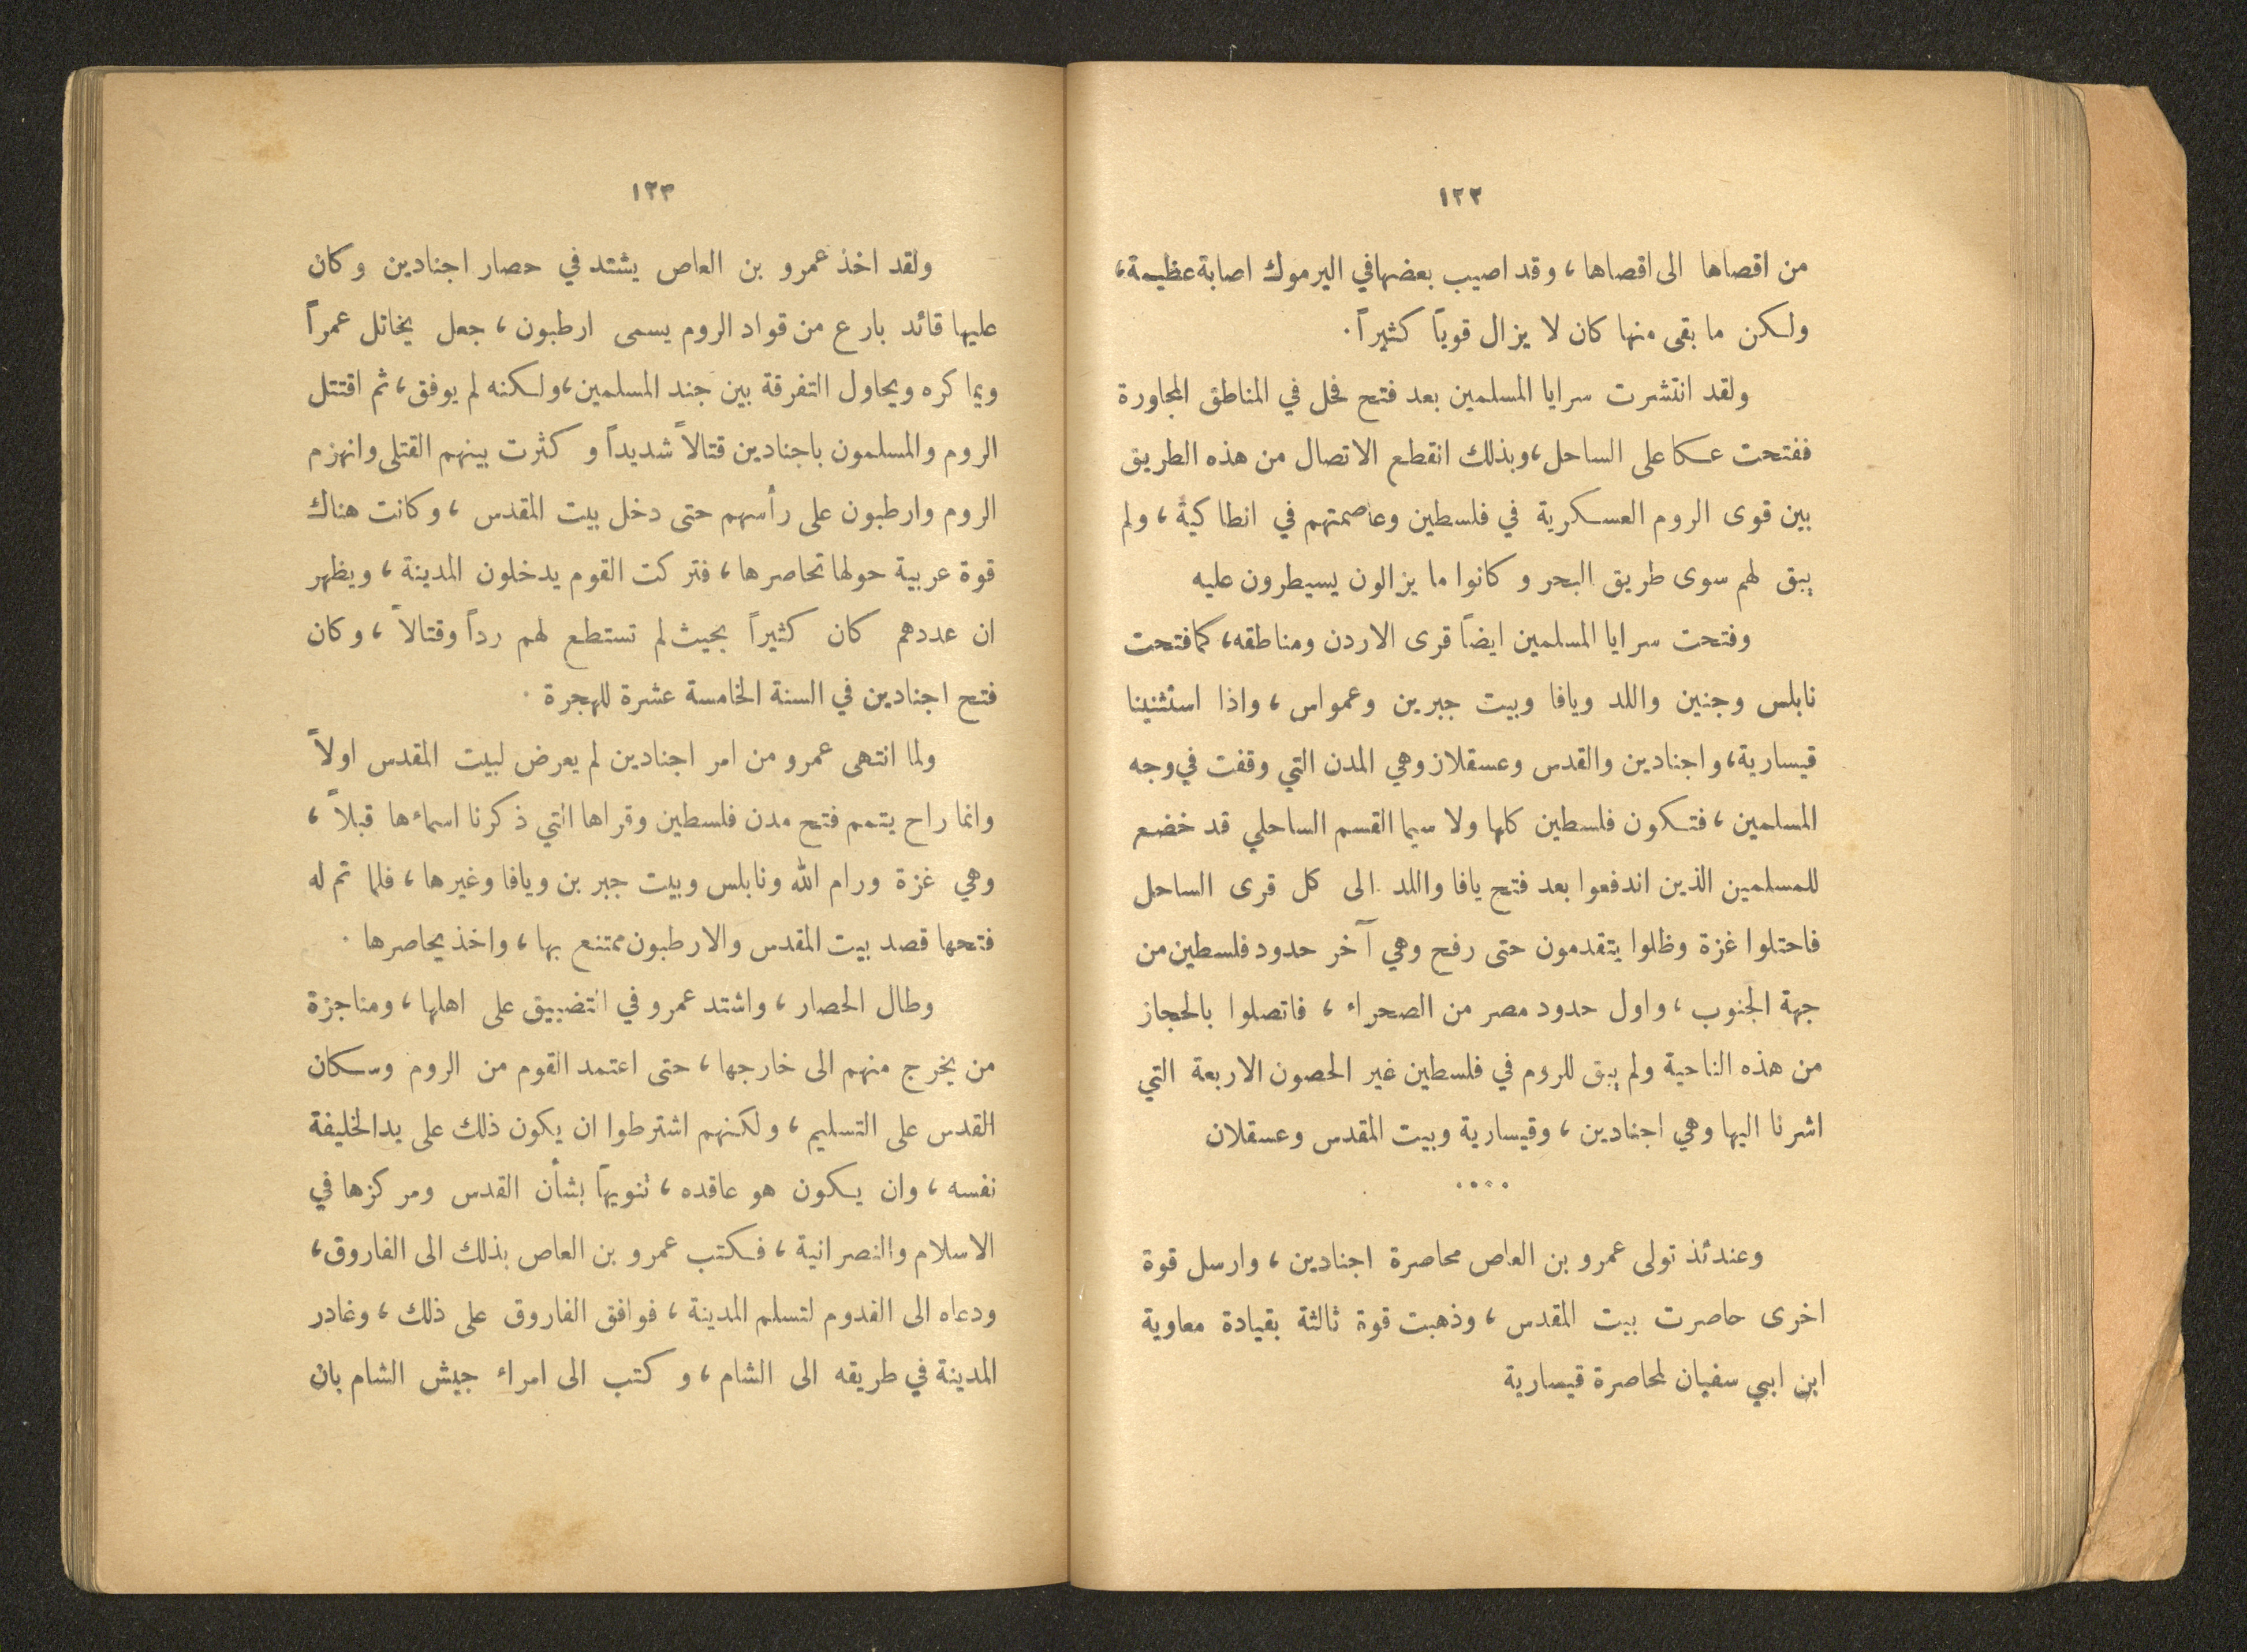 ١٢٢
من اقصاها الى اقصاها، وقد اصيب بعضها في اليرموك اصابة عظيمة،
ولكن ما بقى منها كان لا يزال قوياً كثيراً.
ولقد انتشرت سرايا المسلمين بعد فتح فحل في المناطق المجاورة
ففتحت عكا على الساحل، وبذلك انقطع الاتصال من هذه الطريق
بين قوى الروم العسكرية في فلسطين وعاصمتهم في انطاكية، ولم
يبق لهم سوى طريق البحر وكانوا ما يزالون يسيطرون عليه
وفتحت سرايا المسلمين ايضاً قرى الاردن ومناطقه، كما فتحت
نابلس وجنين واللد ويافا وبيت جبرين وعمواس، واذا استثنينا
قيسارية، واجنادين والقدس وعسقلان وهي المدن التي وقفت في وجه
المسلمين، فتكون فلسطين كلها ولا سيما القسم الساحلي قد خضع
للمسلمين الذين اندفعوا بعد فتح يافا واللد الى كل قرى الساحل
فاحتلوا غزة وظلوا يتقدمون حتى رفح وهي آخر حدود فلسطين من
جهة الجنوب، واول حدود مصر من الصحراء، فاتصلوا بالحجاز
من هذه الناحية ولم يبق للروم في فلسطين غير الحصون الاربعة التي
اشرنا اليها وهي اجنادين، وقيسارية وبيت المقدس وعسقلان
....
وعندئذ تولى عمرو بن العاص محاصرة اجنادين، وارسل قوة
اخرى حاصرت بيت المقدس، وذهبت قوة ثالثة بقيادة معاوية
ابن ابي سفيان لمحاصرة قيسارية
١٢٣
ولقد اخذ عمرو بن العاص يشتد في حصار اجنادين وكان
عليها قائد بارع من قواد الروم يسمى ارطبون، جعل يخاتل عمراً
ويماكره ويحاول التفرقة بين جند المسلمين، ولكنه لم يوفق، ثم اقتتل
الروم والمسلمون باجنادين قتالاً شديداً وكثرت بينهم القتلى وانهزم
الروم وارطبون على رأسهم حتى دخل بيت المقدس، وكانت هناك
قوة عربية حولها تحاصرها، فتركت القوم يدخلون المدينة، ويظهر
ان عددهم كان كثيراً بحيث لم تستطع لهم رداً وقتالاً، وكان
فتح اجنادين في السنة الخامسة عشرة للهجرة.
ولما انتهى عمرو من امر اجنادين لم يعرض لبيت المقدس اولاً
وانما راح يتمم فتح مدن فلسطين وقراها التي ذكرنا اسماءها قبلاً،
وهي غزة ورام الله ونابلس وبيت جبرين ويافا وغيرها، فلما تم له
فتحها قصد بيت المقدس والارطبون ممتنع بها، واخذ يحاصرها.
وطال الحصار، واشتد عمرو في التضييق على اهلها، ومناجزة
من يخرج منهم الى خارجها، حتى اعتمد القوم من الروم وسكان
القدس على التسليم، ولكنهم اشترطوا ان يكون ذلك على يد الخليفة
نفسه، وان يكون هو عاقده، تنويهاً بشأن القدس ومركزها في
الاسلام والنصرانية، فكتب عمرو بن العاص بذلك الى الفاروق،
ودعاه الى القدوم لتسلم المدينة، فوافق الفاروق على ذلك، وغادر
المدينة في طريقه الى الشام، وكتب الى امراء جيش الشام بان